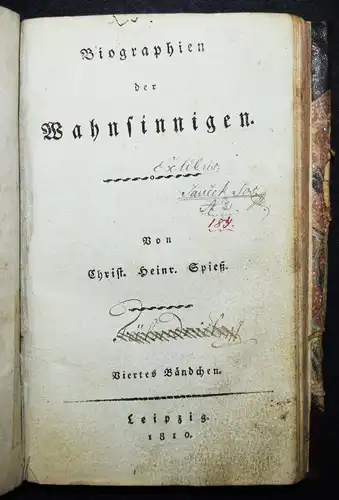 Biographien
der
Wahnsinnigen.
exlibris
184.
Von
Christ. Heinr. Spieß.
Viertes Bändchen.
Leipzig.
1810.